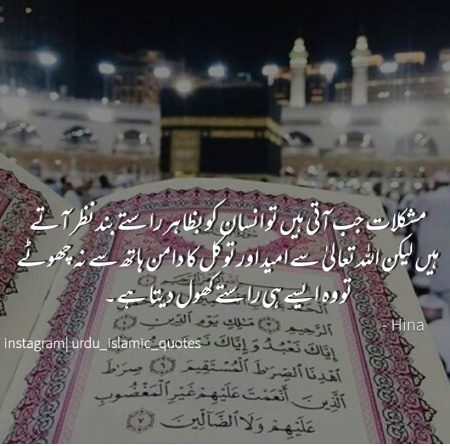 مشکلات جب آتی ہیں تو انسان کو بظاہر راستے بند نظر آتے
ہیں لیکن اللہ تعالیٰ سے امید اور توکل کا دامن ہاتھ سے نہ چھوٹے
تو وہ ایسے ہی راستے کھول دیتا ہے۔
- Hina
instagram| urdu_islamic_quotes
الرَّحِيمِ ۝ مَـٰلِكِ يَوْمِ ٱلدِّينِ
إِيَّاكَ نَعْبُدُ وَإِيَّاكَ
ٱهْدِنَا ٱلصِّرَٰطَ ٱلْمُسْتَقِيمَ ۝٦ صِرَٰطَ
ٱلَّذِينَ أَنْعَمْتَ عَلَيْهِمْ غَيْرِ ٱلْمَغْضُوبِ
عَلَيْهِمْ وَلَا ٱلضَّآلِّينَ ۝٧